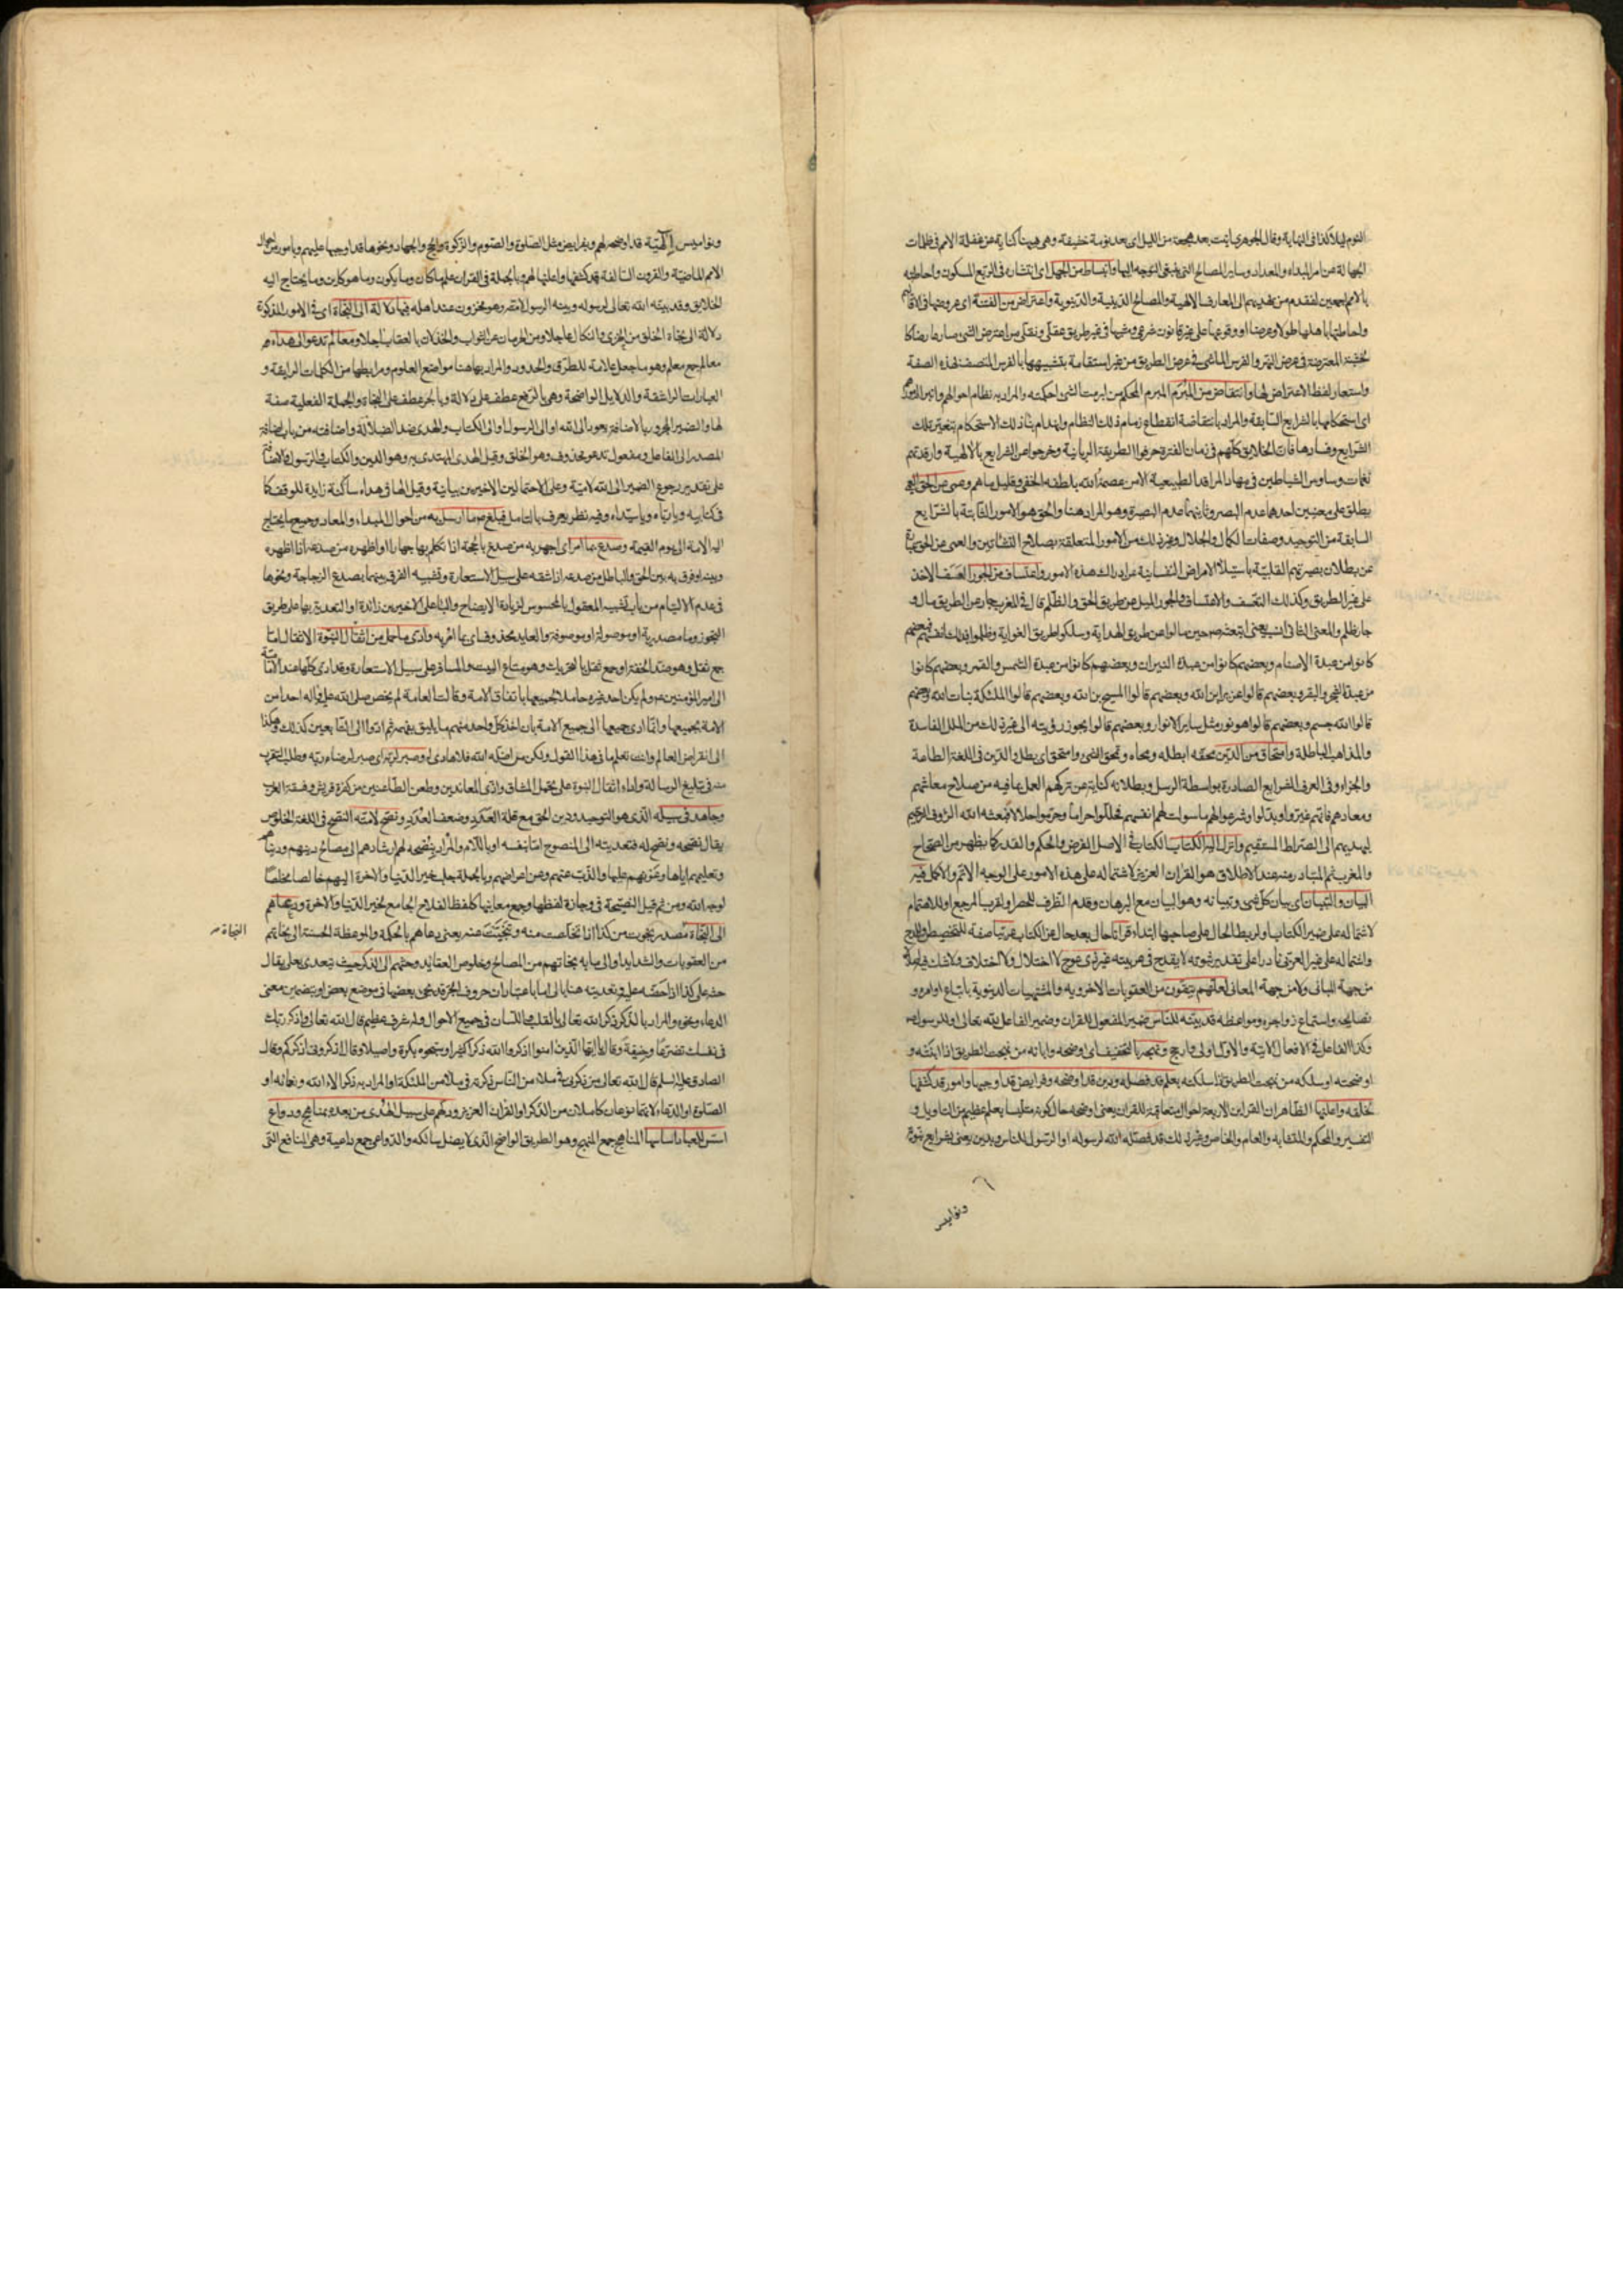 النوم ليلا كذا فى النهاية وقال الجوهرى اتيت بعد هجعة من الليل اى بعد نومة خفيفة وهى هيهنا كناية عن غفلة الامم فى ظلمات
الجهالة عن امر المبداء والمعاد وساير المصالح التى ينبغى التوجه اليها وانبساط من الجهل اى انتشاره فى الربع المسكون واحاطته
بالامم اجمعين لفقدهم من يهديهم الى المعارف الالهية والمصالح الدينية والدنيوية واعتراض من الفتنة اى عروضها فى الاقاليم
واحاطتها باهلها طولا وعرضا او وقوعها على غير قانون شرعى ومشيها فى غير طريق عقلى ونقلى من اعترض الشى صار عارضا كا
لخشبة المعترضة فى عرض النهر والفرس الماشى فى عرض الطريق من غير استقامة بتشبيهها بالفرس المتصف بهذه الصفة
واستعار لفظ الاعتراض لها وانتقاض من المبرم المبرم المحكم من ابرمت الشى احكمته والمراد به نظام احوالهم
اى استحكامها بالشرايع السابقة والمراد بانتقاضه انقطاع زمام ذلك النظام وانهدام بناء ذلك الاستحكام بتغير تلك
الشرايع وفسادها فان الخلايق كلهم فى زمان الفترة حرفوا الطريقة الربانية وخرجوا من الشرايع الالهية وارقدتهم
نغمات وساوس الشياطين فى مهاد المراقد الطبيعية الا من عصمه الله بلطفه الخفى وقليل ما هم وعمى عن الحق العمى
يطلق على معنيين احدهما عدم البصر وثانيهما عدم البصيرة وهو المراد هنا والحق هو الامور الثابتة بالشرايع
السابقة من التوحيد وصفات الكمال والجلال وغير ذلك من الامور المتعلقة بصلاح النشاتين والعمى عن الحق عبارة
عن بطلان بصيرتهم القلبية باستيلاء الامراض النفسانية عن ادراك هذه الامور واعتساف من الجور العسف الاخذ
على غير الطريق وكذلك التعسف والاعتساف والجور الميل عن طريق الحق والظلم قال فى المغرب جار عن الطريق مال و
جار ظلم والمعنى الثانى انسب يعنى ابتعثه حين مالوا عن طريق الهداية وسلكوا طريق الغواية وظلموا بذلك انفسهم فبعضهم
كانوا من عبدة الاصنام وبعضهم كانوا من عبدة النيران وبعضهم كانوا من عبدة الشمس والقمر وبعضهم كانوا
من عبدة الشجر والبقر وبعضهم قالوا عزير ابن الله وبعضهم قالوا المسيح بن الله وبعضهم قالوا الملئكة بنات الله وبعضهم
قالوا الله جسم وبعضهم قالوا هو نور مثل ساير الانوار وبعضهم قالوا يجوز رؤيته الى غير ذلك من الملل الفاسدة
والمذاهب الباطلة وامتحاق من الدين محقه ابطله ومحاه وتمحق الشى وامتحق اى بطل والدين فى اللغة الطاعة
والجزاء وفى العرف الشرايع الصادرة بواسطة الرسل وبطلانه كناية عن تركهم العمل بما فيه من صلاح معاشهم
ومعادهم فانهم غيروا وبدلوا وشرعوا لهم ما سولت لهم انفسهم فحللوا حراما وحرموا حلالا فبعثه الله الرؤف الرحيم
ليهديهم الى الصراط المستقيم وانزل اليه الكتاب الكتاب فى الاصل الفرض والحكم والقدر كما يظهر من الصحاح
والمغرب ثم المتبادر منه عند الاطلاق هو القران العزيز لاشتماله على هذه الامور على الوجه الاتم والاكمل فيه
البيان والتبيان اى بيان كل شى وتبيانه وهو البيان مع البرهان وقدم الظرف للحصر او لقرب المرجع او للاهتمام
لاشتماله على ضمير الكتاب او لربط الحال على صاحبها ابتداء قرانا حال بعد حال عن الكتاب عربيا صفة للتخصيص
واشتماله على غير العربى نادرا على تقدير ثبوته لا يقدح فى عربيته غير ذى عوج لا اختلال ولا اختلاف ولا شك فيه
من جهة المبانى ولا من جهة المعانى لعلهم يتقون من العقوبات الاخروية والمشتهيات الدنيوية باتباع اوامره و
نصايحه واستماع زواجره ومواعظه قد بينه للناس ضمير المفعول للقران وضمير الفاعل لله تعالى او للرسول ص
وكذا الفاعل فى الافعال الاتية والاول اولى وارجح ونهجه بالتخفيف اى اوضحه وابانه من نهجت الطريق اذا ابنته و
اوضحته او سلكه من نهجت الطريق اذا سلكته بعلم قد فصله ودين قد اوضحه وفرايض قد اوجبها وامور قد كشفها
لخلقه واعلنها الظاهر ان القراين الاربعة احوال متعاقبة للقران يعنى اوضحه حال كونه متلبسا بعلم عظيم من التاويل و
التفسير والمحكم والمتشابه والعام والخاص وغير ذلك قد فصله الله لرسوله او الرسول للناس وبدين يعنى بشرايع نبوية
ونواميس
ونواميس الهية قد اوضحه لهم وبفرايض مثل الصلوة والصوم والزكوة والحج والجهاد ونحوها قد اوجبها عليهم وبامور من احوال
الامم الماضية والقرون السالفة قد كشفها واعلنها لهم وبالجملة فى القران علم ما كان وما يكون وما هو كاين وما يحتاج اليه
الخلايق وقد بينه الله تعالى لرسوله وبينه الرسول لاهله وهو مخزون عند اهله فيها دلالة الى النجاة اى فى الامور المذكورة
دلالة الى نجاة الخلق من الخزى والنكال عاجلا ومن الحرمان عن الثواب والخذلان بالعقاب اجلا ومعالم تدعو الى هداه
معالم جمع معلم وهو ما جعل علامة للطرق والحدود والمراد بها هنا مواضع العلوم ومرابطها من الكلمات الرايقة و
العبارات الراشقة والدلايل الواضحة وهى بالرفع عطف على دلالة وبالجر عطف على النجاة والجملة الفعلية صفة
لها والضمير المجرور بالاضافة يعود الى الله او الى الرسول او الى الكتاب والهدى ضد الضلالة واضافته من باب اضافة
المصدر الى الفاعل ومفعول تدعو محذوف وهو الخلق وقيل الهدى المهتدى به وهو الدين والكتاب والرسول والاضافة
على تقدير رجوع الضمير الى الله لامية وعلى الاحتمالين الاخيرين بيانية وقيل الها فى هداه ساكنة زايدة للوقف كما
فى كتابيه ويا رباه ويا سيداه وفيه نظر يعرف بالتامل فبلغ ص ما ارسل به من احوال المبداء والمعاد وجميع ما يحتاج
اليه الامة الى يوم القيمة وصدع بما امر اى اجهر به من صدع بالحجة اذا تكلم بها جهارا او اظهره من صدعه اذا اظهره
وبينه او فرق به بين الحق والباطل من صدعه اذا شقه على سبيل الاستعارة وتشبيه الفرق بينهما بصدع الزجاجة ونحوها
فى عدم الالتيام من باب تشبيه المعقول بالمحسوس لزيادة الايضاح والباء على الاخيرين زائدة او التعدية بها على طريق
التجوز وما مصدرية او موصولة او موصوفة والعايد محذوف اى بما امر به وادى ما حمل من اثقال النبوة الاثقال اما
جمع ثقل وهو ضد الخفة او جمع ثقل بالتحريك وهو متاع البيت والمسافر على سبيل الاستعارة وقد ادى كلها عند الامانة
الى امير المؤمنين ع ولم يكن احد غيره حاملا لجميعها باتفاق الامة وقالت العامة لم يخص صلى الله عليه واله احدا من
الامة بجميعها وانما ادى جميعها الى جميع الامة بان اخذ كل واحد منهم ما يليق بفهمه ثم ادوا الى التابعين كذلك وهكذا
الى انقراض العالم وانت تعلم ما فى هذا القول ولكن من اضله الله فلا هادى له وصبر لربه اى صبر لرضاء ربه وطلب التقرب
منه فى تبليغ الرسالة واداء اثقال النبوة على تحمل المشاق واذى المعاندين وطعن الطاعنين من كفرة قريش وفسقة العرب
وجاهد فى سبيله الذى هو التوحيد ودين الحق مع قلة العدد وضعف العدد ونصح لامته النصح فى اللغة الخلوص
يقال نصحه ونصح له فتعديته الى المنصوح اما بنفسه او باللام والمراد بنصحه لهم ارشادهم الى مصالح دينهم ودنياهم
وتعليمهم اياها وعونهم عليها والذب عنهم وعن اعراضهم وبالجملة جلب خير الدنيا والاخرة اليهم خالصا مخلصا
لوجه الله ومن ثم قيل النصيحة فى وجازة لفظها وجمع معانيها كلفظ الفلاح الجامع لخير الدنيا والاخرة ودعاهم
الى النجاة مصدر نجوت من كذا اذا تخلصت منه وتنحيت عنه يعنى دعاهم بالحكمة والموعظة الحسنة الى نجاتهم
النجاة
من العقوبات والشدايد او الى ما به نجاتهم من المصالح وخلوص العقايد وحثهم الى الذكر حيث يتعدى بعلى يقال
حثه على كذا اذا حضه عليه وتعديته هنا بالى اما باعتبار ان حروف الجر قد يجئ بعضها فى موضع بعض او بتضمين معنى
الدعاء ونحوه والمراد بالذكر ذكر الله تعالى بالقلب واللسان فى جميع الاحوال وله شرف عظيم قال الله تعالى واذكر ربك
فى نفسك تضرعا وخيفة وقال يا ايها الذين امنوا اذكروا الله ذكرا كثيرا وسبحوه بكرة واصيلا وقال اذكرونى اذكركم وقال
الصادق عليه السلم قال الله تعالى من ذكرنى فى ملاء من الناس ذكرته فى ملاء من الملئكة او المراد به ذكر الاء الله ونعمائه او
الصلوة او الدعاء لانهما نوعان كاملان من الذكر او القران العزيز ودلهم على سبيل الهدى من بعده بمناهج ودواع
اسس للعباد اساسها المناهج جمع المنهج وهو الطريق الواضح الذى لا يضل سالكه والدواعى جمع داعية وهى المنافع التى